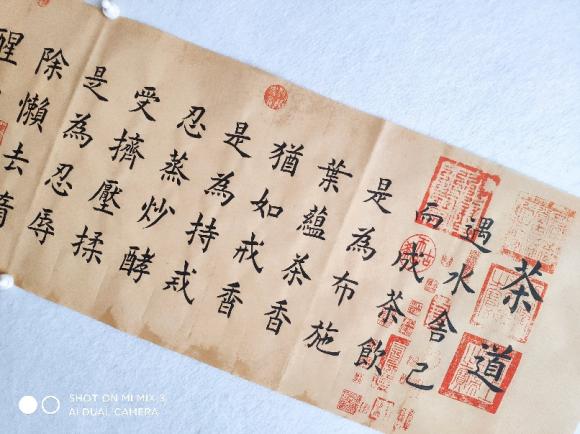 茶道
遇水舍己
而成茶飲
是為布施
葉蘊茶香
猶如戒香
是為持戒
忍蒸炒酵
受擠壓揉
是為忍辱
除懶去惰
醒
SHOT ON MI MIX 3
AI DUAL CAMERA